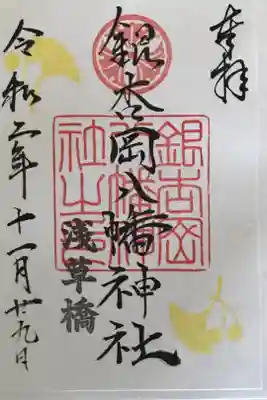 奉拝
銀杏岡八幡神社
浅草橋
令和二年十一月廿九日
銀杏岡
社之印